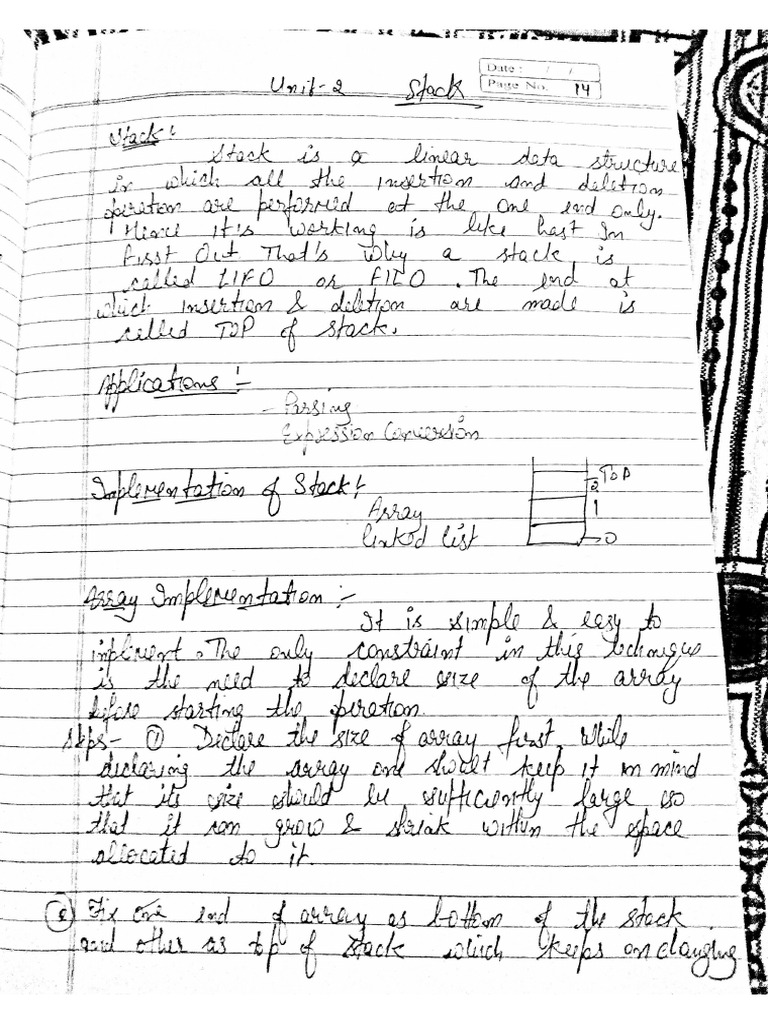 Date: / /
Unit-2 Stack Page No. 14
Stack:
Stack is a linear data structure
in which all the insertion and deletion
operation are performed at the one end only.
Hence it's working is like Last In
First Out That's why a stack is
called LIFO or FILO. The end at
which insertion & deletion are made is
called TOP of stack.
Applications :-
- Parsing
Expression Conversion
Implementation of Stack:
Array
linked list
TOP
2
1
0
Array Implementation :-
It is simple & easy to
implement. The only constraint in this technique
is the need to declare size of the array
before starting the operation.
Steps- ① Declare the size of array first, while
declaring the array one should keep it in mind
that its size should be sufficiently large so
that it can grow & shrink within the space
allocated to it.
② Fix one end of array as bottom of the stack
and other as top of stack which keeps on changing